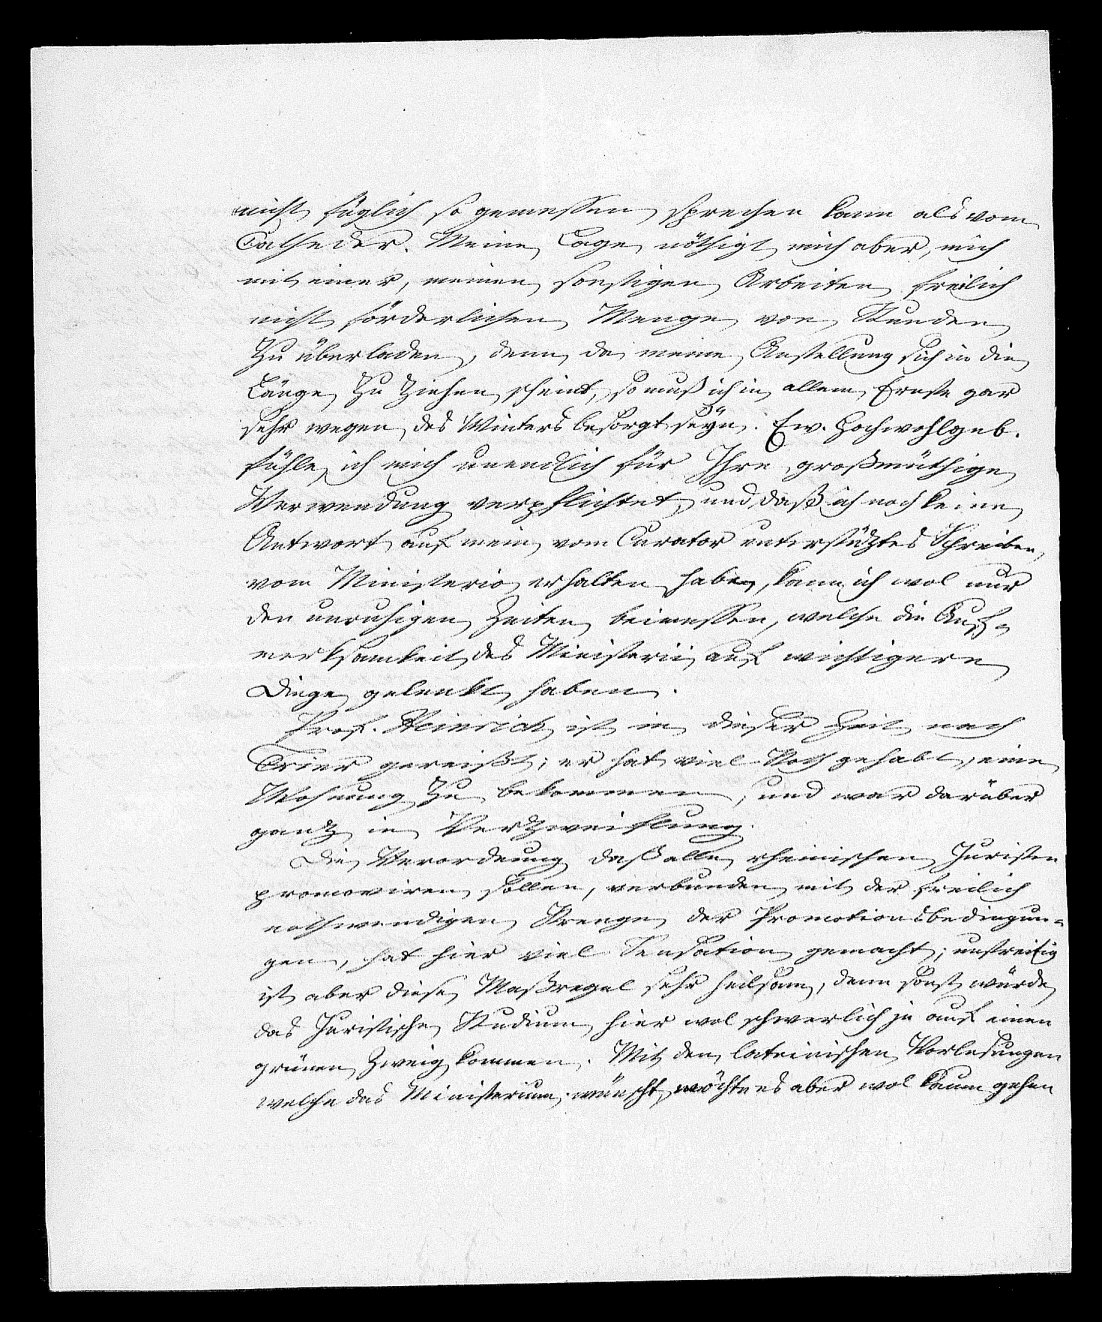 nicht füglich so gemessen sprechen kann als vom
Catheder. Meine Lage nöthigt mich aber, mich
mit einer, meinen sonstigen Arbeiten freilich
nicht förderlichen Menge von Stunden
zu überladen, denn da meine Anstellung sich in die
Länge zu ziehen scheint, so muß ich in allem Ernste gar
sehr wegen des Winters besorgt seyn. Ew. Hochwohlgeb.
fühle ich mich unendlich für Ihre großmüthige
Verwendung verpflichtet, und daß ich noch keine
Antwort auf mein vom Curator unterstütztes Schreiben,
vom Ministerio erhalten habe, kann ich wol nur
den unruhigen Zeiten beimessen, welche die Auf-
merksamkeit des Ministerii auf wichtigere
Dinge gelenkt haben.
Prof. Heinrich ist in dieser Zeit nach
Trier gereist; er hat viel Noth gehabt, eine
Wohnung zu bekommen, und war darüber
ganz in Verzweiflung.
Die Verordnung daß alle rheinischen Juristen
promoviren sollen, verbunden mit der freilich
nothwendigen Strenge der Promotionsbedingun-
gen, hat hier viel Sensation gemacht; unstreitig
ist aber diese Maßregel sehr heilsam, denn sonst würde
das Juristische Studium hier wol schwerlich je auf einen
grünen Zweig kommen. Mit den lateinischen Vorlesungen
welche das Ministerium wünscht, möchte es aber wol kaum gehen